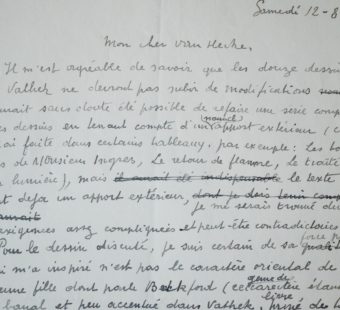 Samedi 12-8
Mon cher Van Hecke,
Il m'est agréable de savoir que les douze dessin
Vathek ne devront pas subir de modifications
urait sans doute été possible de refaire une série comp
es dessins en tenant compte d'un nouvel apport extérieur (c
ai faite dans certains tableaux, par exemple : les bo
de Monsieur Ingres, Le retour de flamme, le traité
lumière), mais il aurait été indispensable le texte
nt déjà un apport extérieur, dont je dois tenir comp
je me serais trouvé de
exigences assez compliquées et peut-être contradictoires
Pour le dessin discuté, je suis certain de sa qualit
i m'a inspiré n'est pas le caractère oriental de
eune fille dont parle Beckford (ce caractère étan
banal et peu accentué dans Vathek, privé des
livre